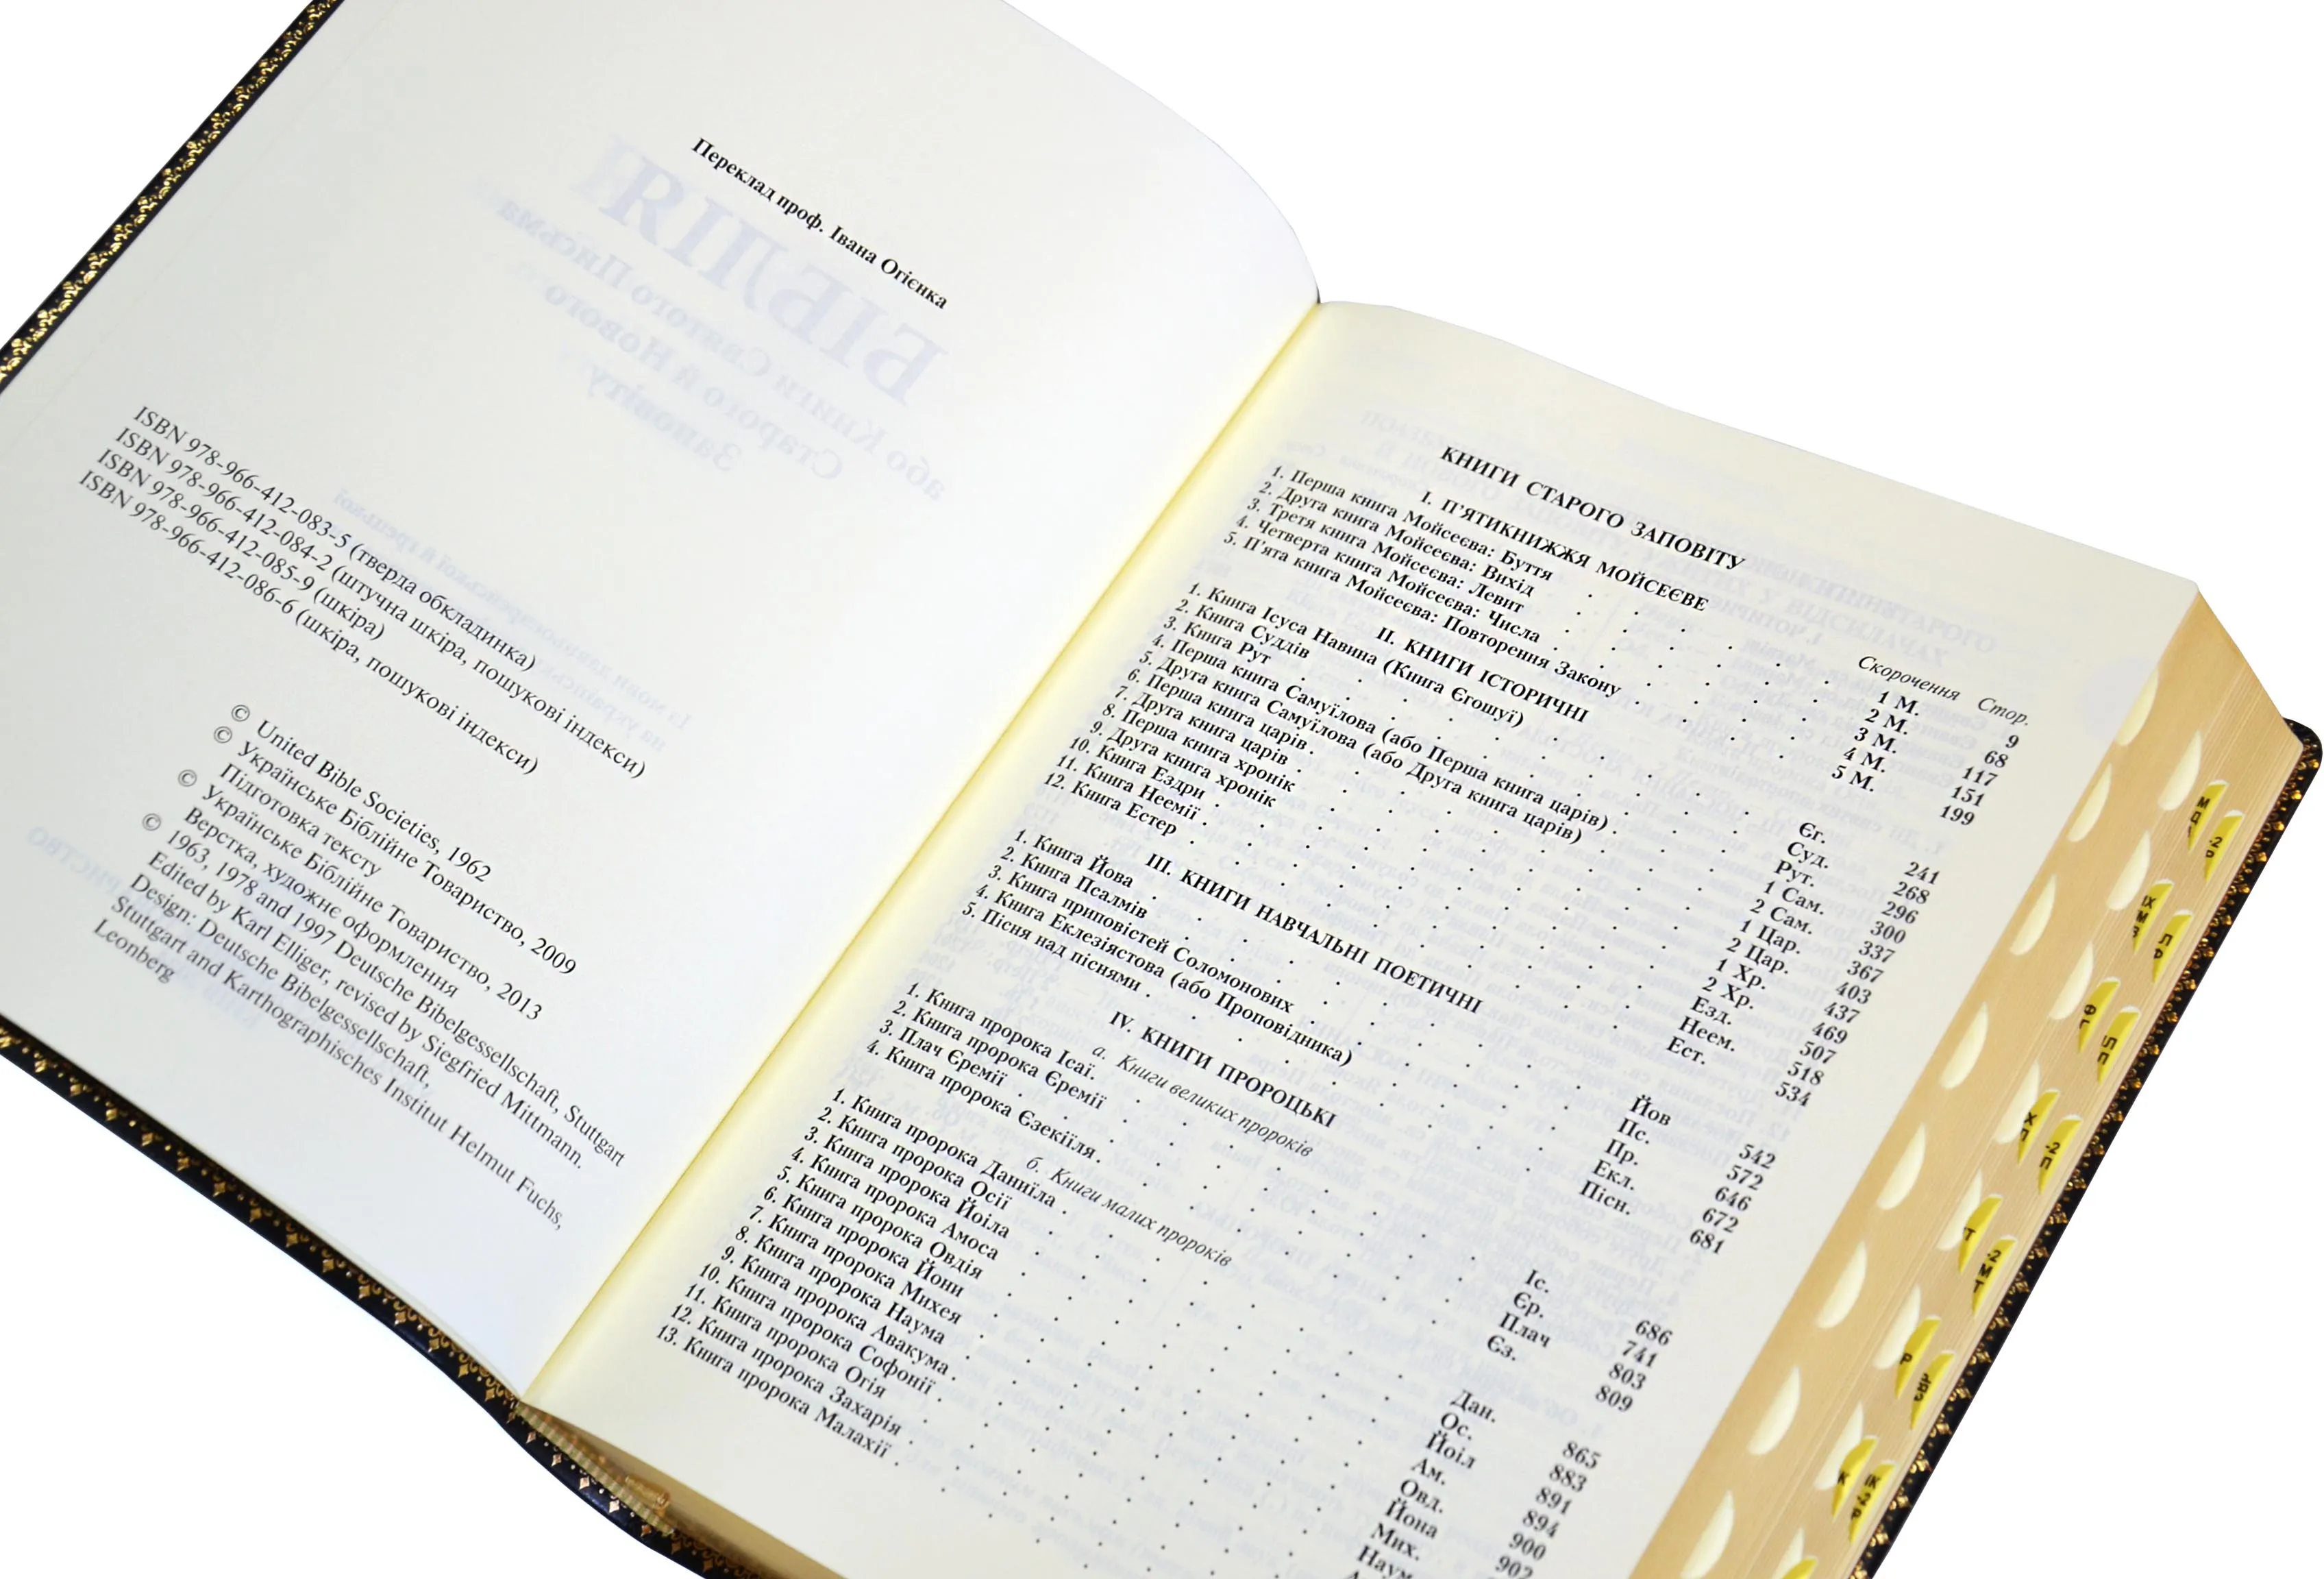 Переклад проф. Івана Огієнка
ISBN 978-966-412-083-5 (тверда обкладинка)
ISBN 978-966-412-084-2 (штучна шкіра, пошукові індекси)
ISBN 978-966-412-085-9 (шкіра)
ISBN 978-966-412-086-6 (шкіра, пошукові індекси)
© United Bible Societies, 1962
© Українське Біблійне Товариство, 2009
Підготовка тексту
© Українське Біблійне Товариство, 2013
Верстка, художнє оформлення
© 1963, 1978 and 1997 Deutsche Bibelgesellschaft, Stuttgart
Edited by Karl Elliger, revised by Siegfried Mittmann.
Design: Deutsche Bibelgesellschaft,
Stuttgart and Karthographisches Institut Helmut Fuchs,
Leonberg
КНИГИ СТАРОГО ЗАПОВІТУ
Скорочення Стор.
І. П'ЯТИКНИЖЖЯ МОЙСЕЄВЕ
1. Перша книга Мойсеєва: Буття . . . 1 М. 9
2. Друга книга Мойсеєва: Вихід . . . 2 М. 68
3. Третя книга Мойсеєва: Левит . . . 3 М. 117
4. Четверта книга Мойсеєва: Числа . . . 4 М. 151
5. П'ята книга Мойсеєва: Повторення Закону . . . 5 М. 199
ІІ. КНИГИ ІСТОРИЧНІ
1. Книга Ісуса Навина (Книга Єгошуї) . . . Єг. 241
2. Книга Суддів . . . Суд. 268
3. Книга Рут . . . Рут. 296
4. Перша книга Самуїлова (або Перша книга царів) . . . 1 Сам. 300
5. Друга книга Самуїлова (або Друга книга царів) . . . 2 Сам. 337
6. Перша книга царів . . . 1 Цар. 367
7. Друга книга царів . . . 2 Цар. 403
8. Перша книга хронік . . . 1 Хр. 437
9. Друга книга хронік . . . 2 Хр. 469
10. Книга Ездри . . . Езд. 507
11. Книга Неемії . . . Неем. 518
12. Книга Естер . . . Ест. 534
ІІІ. КНИГИ НАВЧАЛЬНІ ПОЕТИЧНІ
1. Книга Йова . . . Йов 542
2. Книга Псалмів . . . Пс. 572
3. Книга приповістей Соломонових . . . Пр. 646
4. Книга Еклезіястова (або Проповідника) . . . Екл. 672
5. Пісня над піснями . . . Пісн. 681
IV. КНИГИ ПРОРОЦЬКІ
а. Книги великих пророків
1. Книга пророка Ісаї . . . Іс. 686
2. Книга пророка Єремії . . . Єр. 741
3. Плач Єремії . . . Плач 803
4. Книга пророка Єзекіїля . . . Єз. 809
б. Книги малих пророків
1. Книга пророка Даниїла . . . Дан. 865
2. Книга пророка Осії . . . Ос. 883
3. Книга пророка Йоіла . . . Йоіл 891
4. Книга пророка Амоса . . . Ам. 894
5. Книга пророка Овдія . . . Овд. 900
6. Книга пророка Йони . . . Йона 902
7. Книга пророка Михея . . . Мих.
8. Книга пророка Наума . . . Наум
9. Книга пророка Авакума
10. Книга пророка Софонії
11. Книга пророка Огія
12. Книга пророка Захарія
13. Книга пророка Малахії